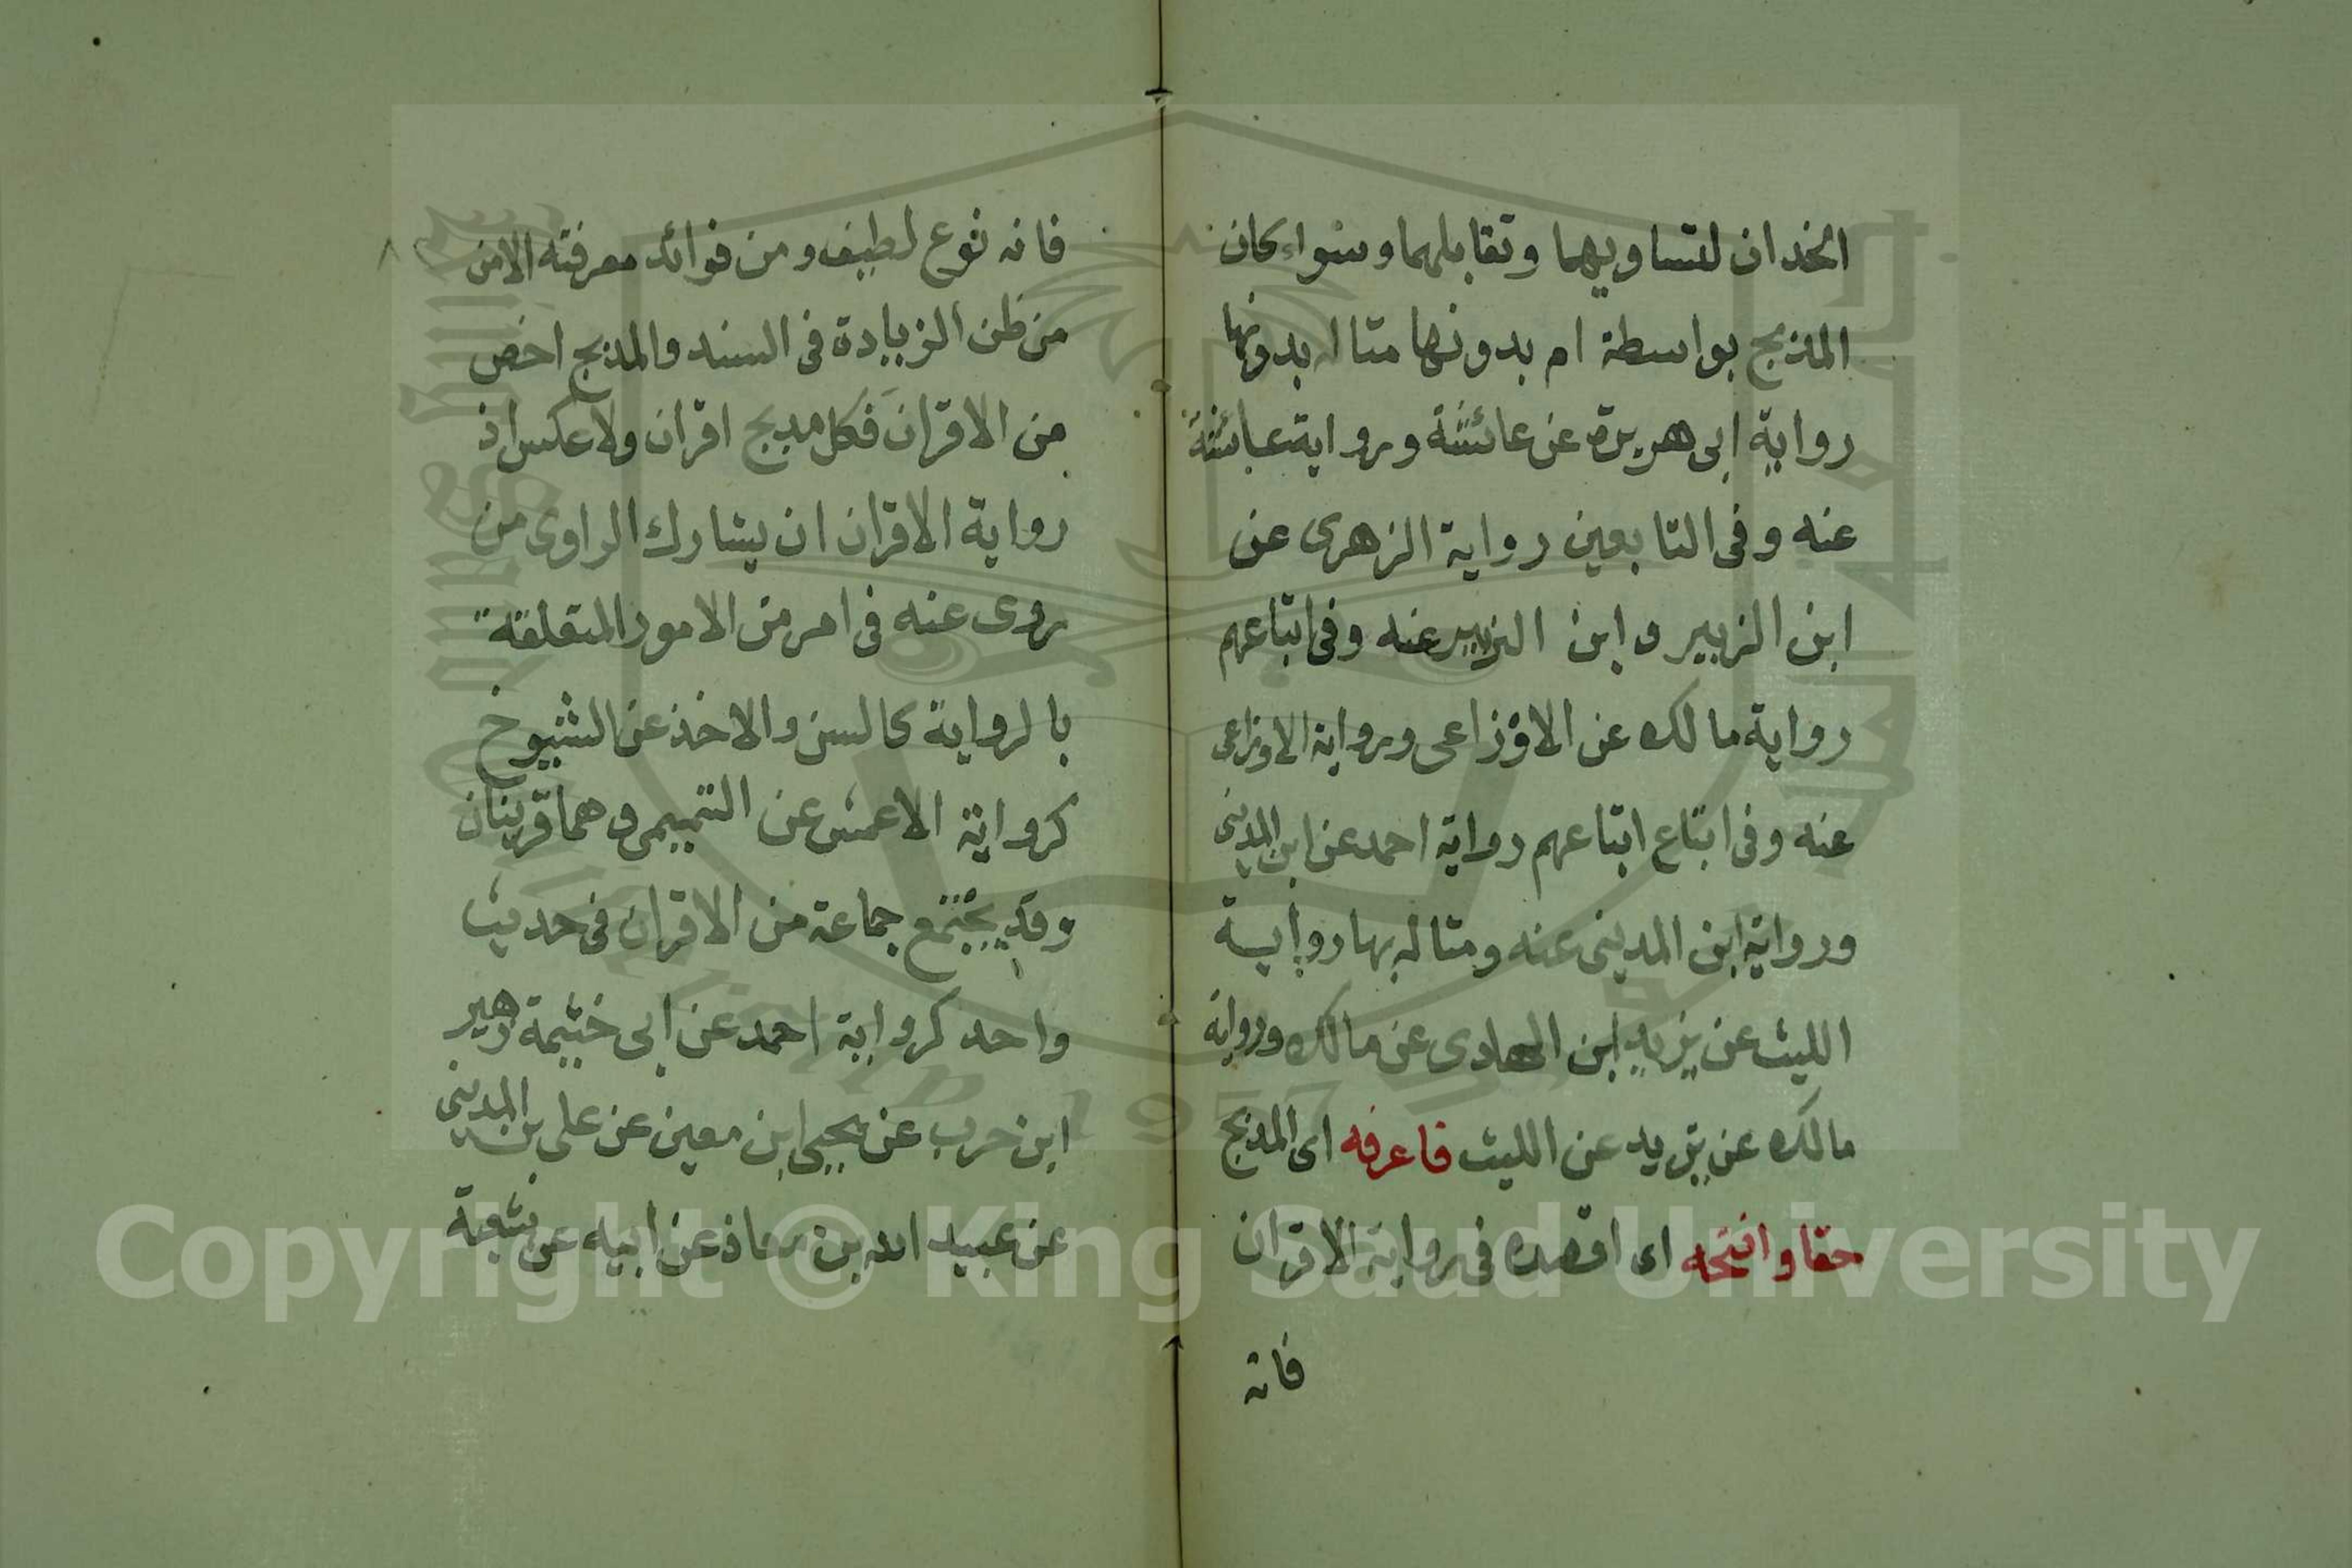 الخدان لتساويهما وتقابلهما وسواء كان
المذبج بواسطة ام بدونها مثاله بدونها
رواية ابى هريرة عن عائشة ورواية عائشة
عنه وفى التابعين رواية الزهرى عن
ابن الزبير وابن الزبير عنه وفى اتباعهم
رواية مالك عن الاوزاعى ورواية الاوزاعى
عنه وفى اتباع اتباعهم رواية احمد عن ابن المدينى
ورواية ابن المدينى عنه ومثاله بها رواية
الليث عن يزيد ابن الهادى عن مالك ورواية
مالك عن يزيد عن الليث فاعرفه اى المدبج
حقا وانتخه اى اقصده فى رواية الاقران
فانه
فانه نوع لطيف ومن فوائد معرفته الامن
من ظن الزيادة فى السند والمدبج اخص
من الاقران فكل مدبج اقران ولا عكس اذ
رواية الاقران ان يشارك الراوى من
روى عنه فى امر من الامور المتعلقة
بالرواية كالسن والاخذ عن الشيوخ
كرواية الاعمش عن التيمى وهما قرينان
وقد يجتمع جماعة من الاقران فى حديث
واحد كرواية احمد عن ابى خثيمة زهير
ابن حرب عن يحيى ابن معين عن على بن المدينى
عن عبيد الله بن معاذ عن ابيه عن شعبة
Copyright © King Saud University
1957